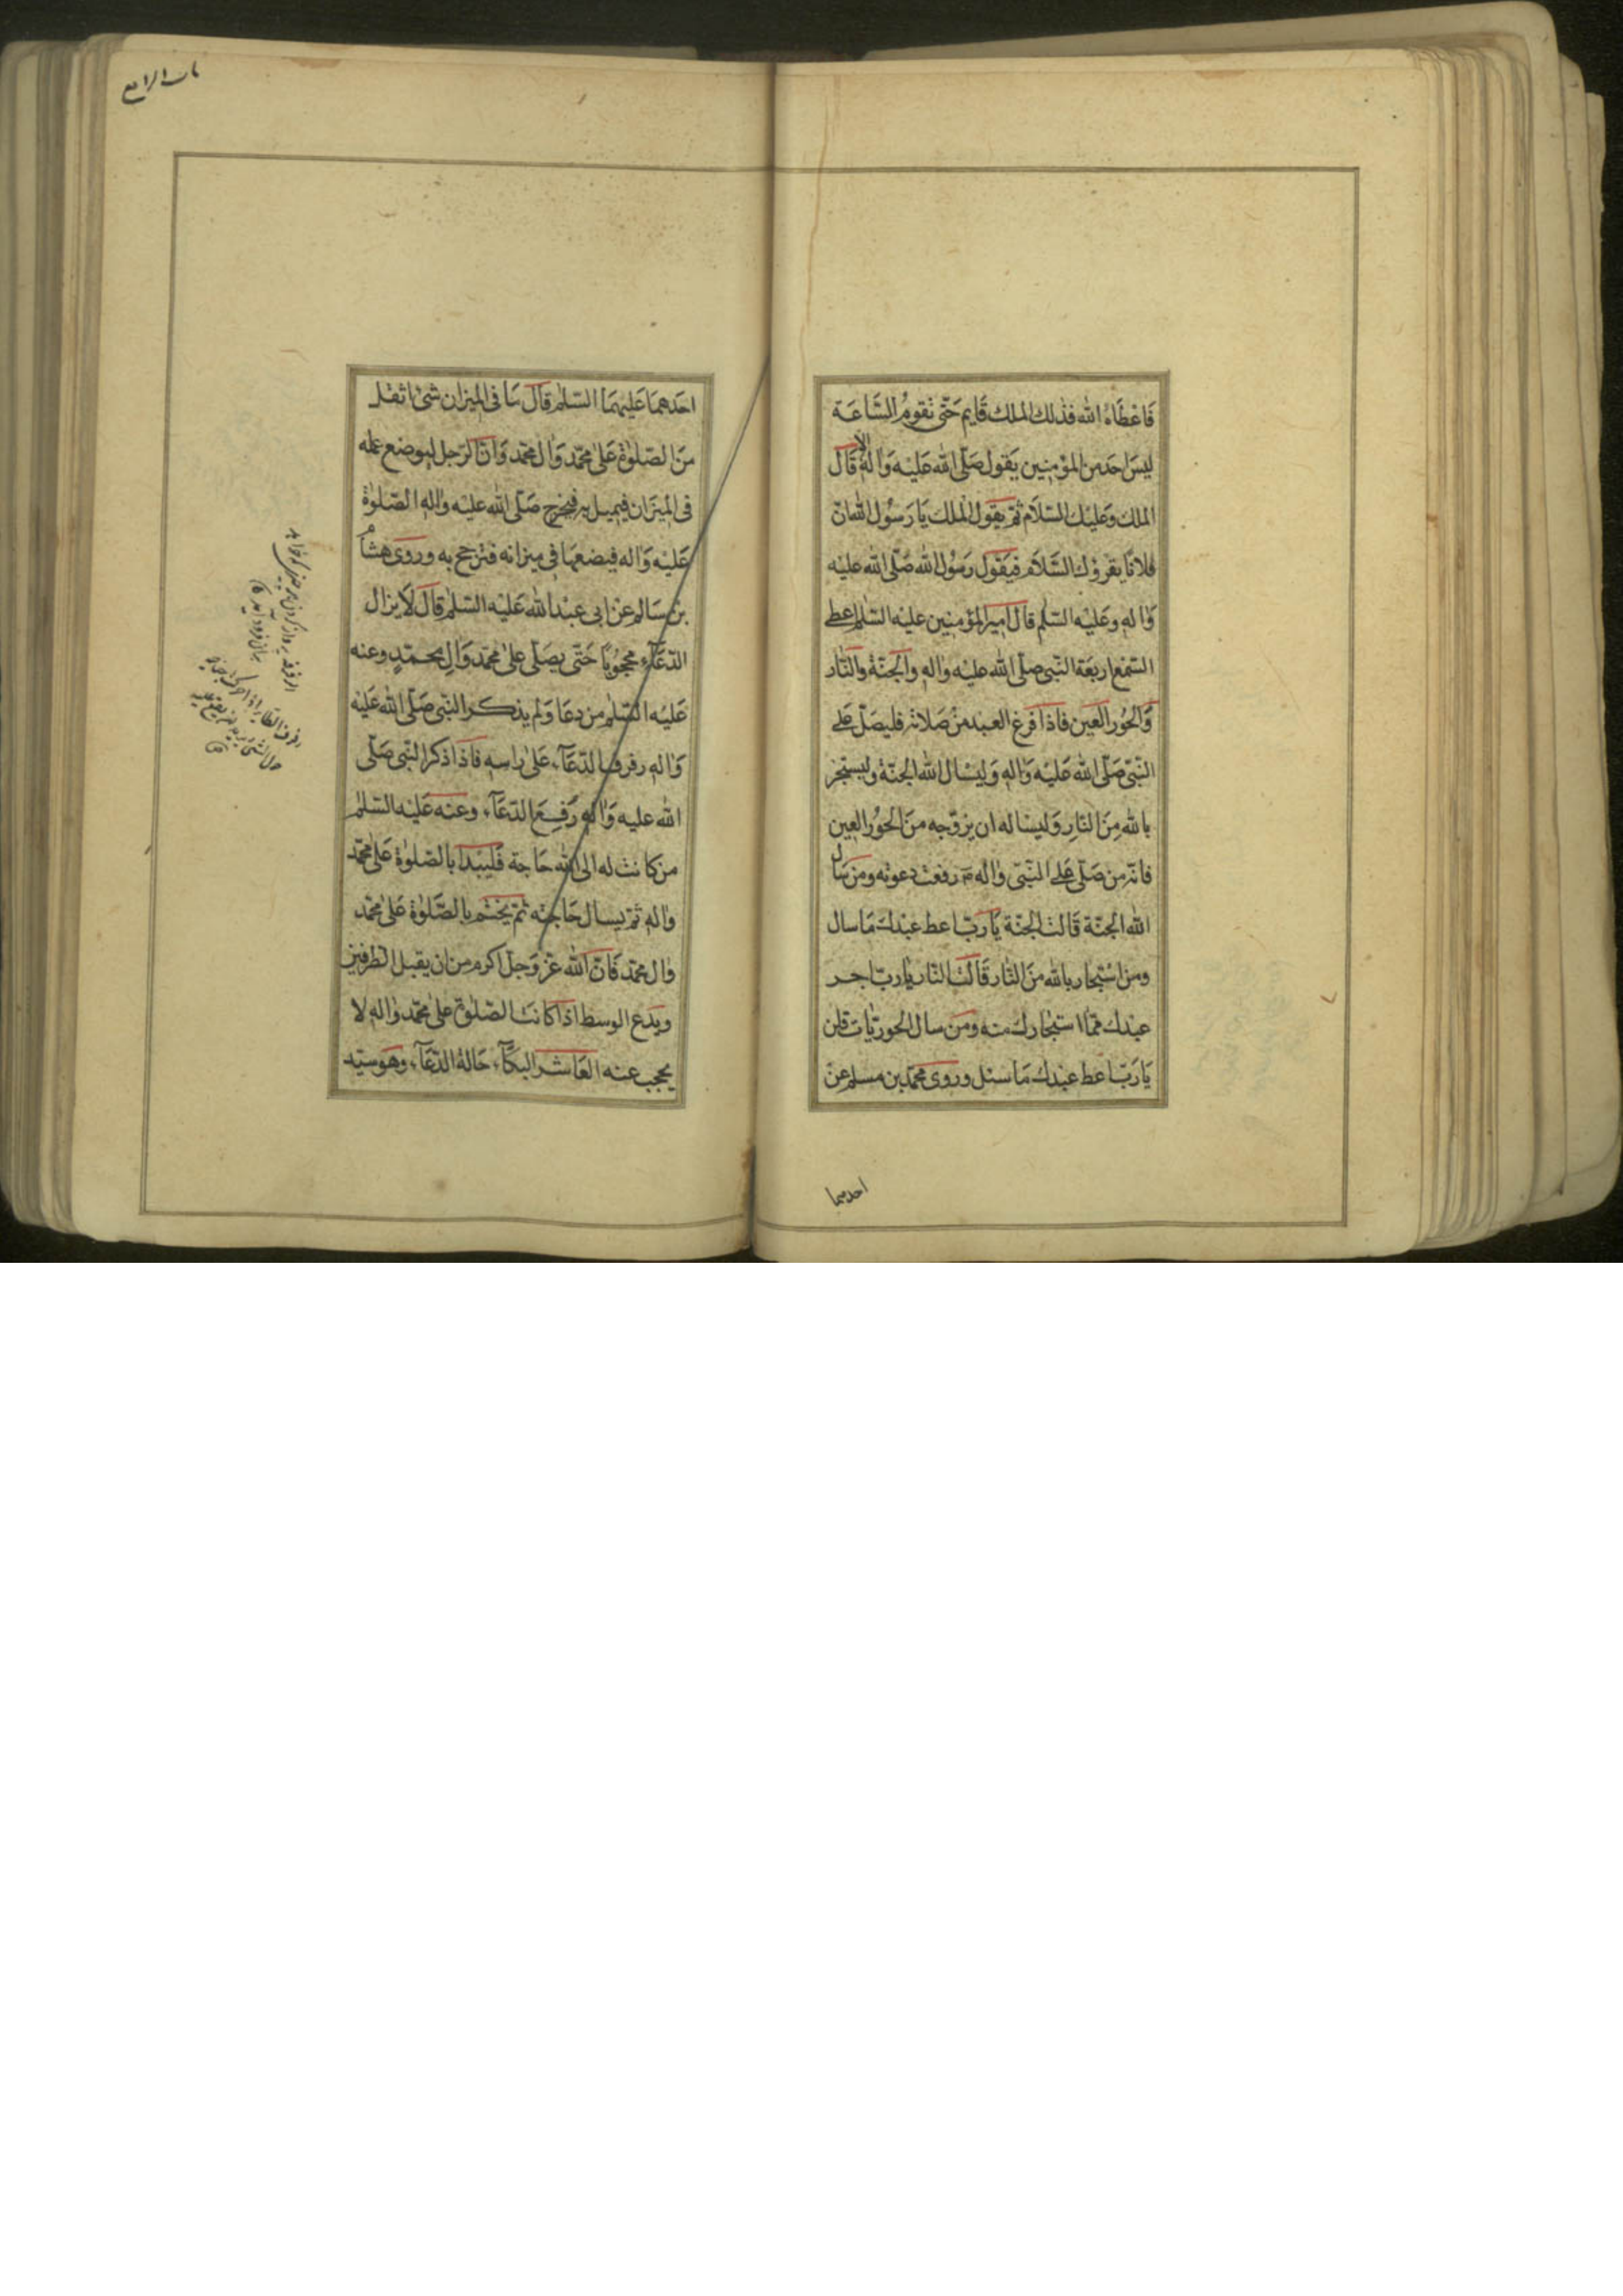 فَاعْطَاهُ الله فذلك الملك قَايم حَتّى تقومُ السَّاعَة
ليسَ احَد من المؤمِنين يَقول صَلّى الله عَليْه وَالِه الا قَالَ
الملك وَعليْك السّلاَم ثمّ يقول الملك يَا رَسُول الله انّ
فلانًا يقرؤك السَّلاَم فيَقول رَسُول الله صَلّى الله عليْه
وَالهِ وعَليْه السّلم قالَ امير المؤمنين عليْه السّلم اعطى
السّمع اربعَة النّبي صلّى الله عليْه واله والجنّة والنّار
وَالحُور العين فاذا فرغ العبد منْ صَلاته فليصَلّ عَلى
النّبّى صَلّى الله عَليْه وَالهِ وَليسْال الله الجنّة وليستجرْ
بالله مِنَ النّارِ وَليسْاله ان يزوّجه منَ الحُور العين
فانّه من صَلّى عَلى النّبّى واله رفعت دعوته ومن سَال
الله الجنّة قَالت الجنّة يَا ربّ اعط عبْدك مَا سال
ومن اسْتجار بالله منَ النّار قَالت النّار يا ربّ اجر
عبْدك ممّا استجارك منه ومَن سال الحور يّات قلن
يَا رَبّ اعط عبْدك مَا سئل وروى محمّد بن مسلم عنْ
احدهما
باب الرابع
احَدهمَا عَليهمَا السّلم قالَ مَا فى الميزان شئ اثقل
منَ الصّلوة عَلى محمّد وَال محمّد وَانّ الرّجل ليوضع عمله
فى الميزَان فيميل به فيخرج صَلّى الله عليْه واله الصّلوة
عَليْه وَاله فيضعهَا فى ميزانه فترجح به وروى هشامُ
بن سَالم عنْ ابى عبْد الله عَليْه السّلم قالَ لَا يزال
الدّعَآء محجُوبًا حَتّى يصَلّى على محمّد وَالِ محمّدٍ وعنه
عَليْه السّلم من دعَا وَلم يذكر النّبى صَلّى الله عَليْه
وَالهِ رفرف الدّعَآء عَلى راسهِ فاذا ذكر النّبى صَلّى
الله عليه وَالهِ رُفِعَ الدّعَآء وعنه عَليْه السّلم
من كانت له الى الله حَاجة فليبْدا بالصّلوة عَلى محمّد
والهِ ثم يسال حَاجته ثمّ يختم بالصّلوة عَلى محمّد
وال محمّد فانّ الله عزّ وَجلّ اكرم من ان يقبل الطرفين
ويدَع الوسط اذا كانت الصّلوة على محمّد والهِ لا
يحجب عنه العَاشر البكآء حَالة الدّعَآء وهو سيّد